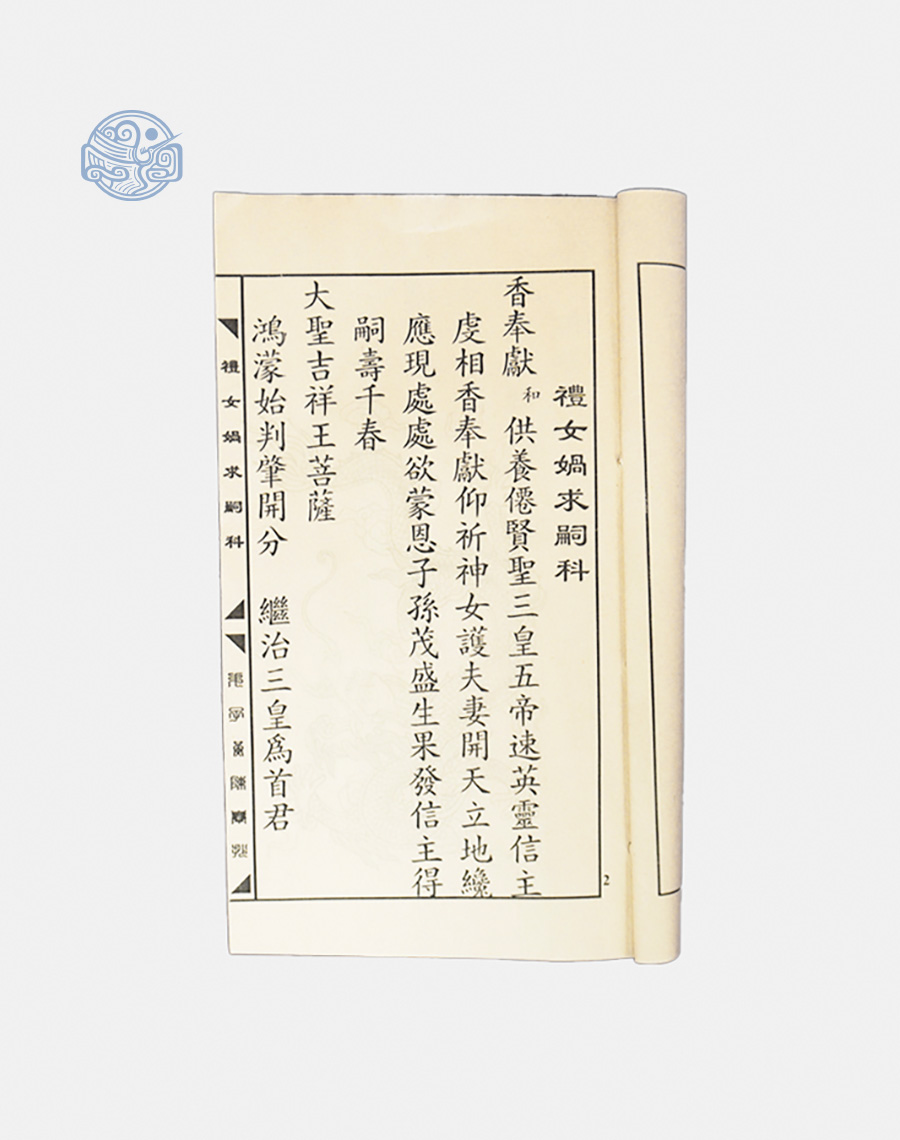 禮女媧求嗣科
香奉獻 和 供養僊賢聖三皇五帝速英靈信主
虔相香奉獻仰祈神女護夫妻開天立地纔
應現處處欲蒙恩子孫茂盛生果發信主得
嗣壽千春
大聖吉祥王菩薩
鴻濛始判肇開分 繼治三皇爲首君
禮女媧求嗣科
2